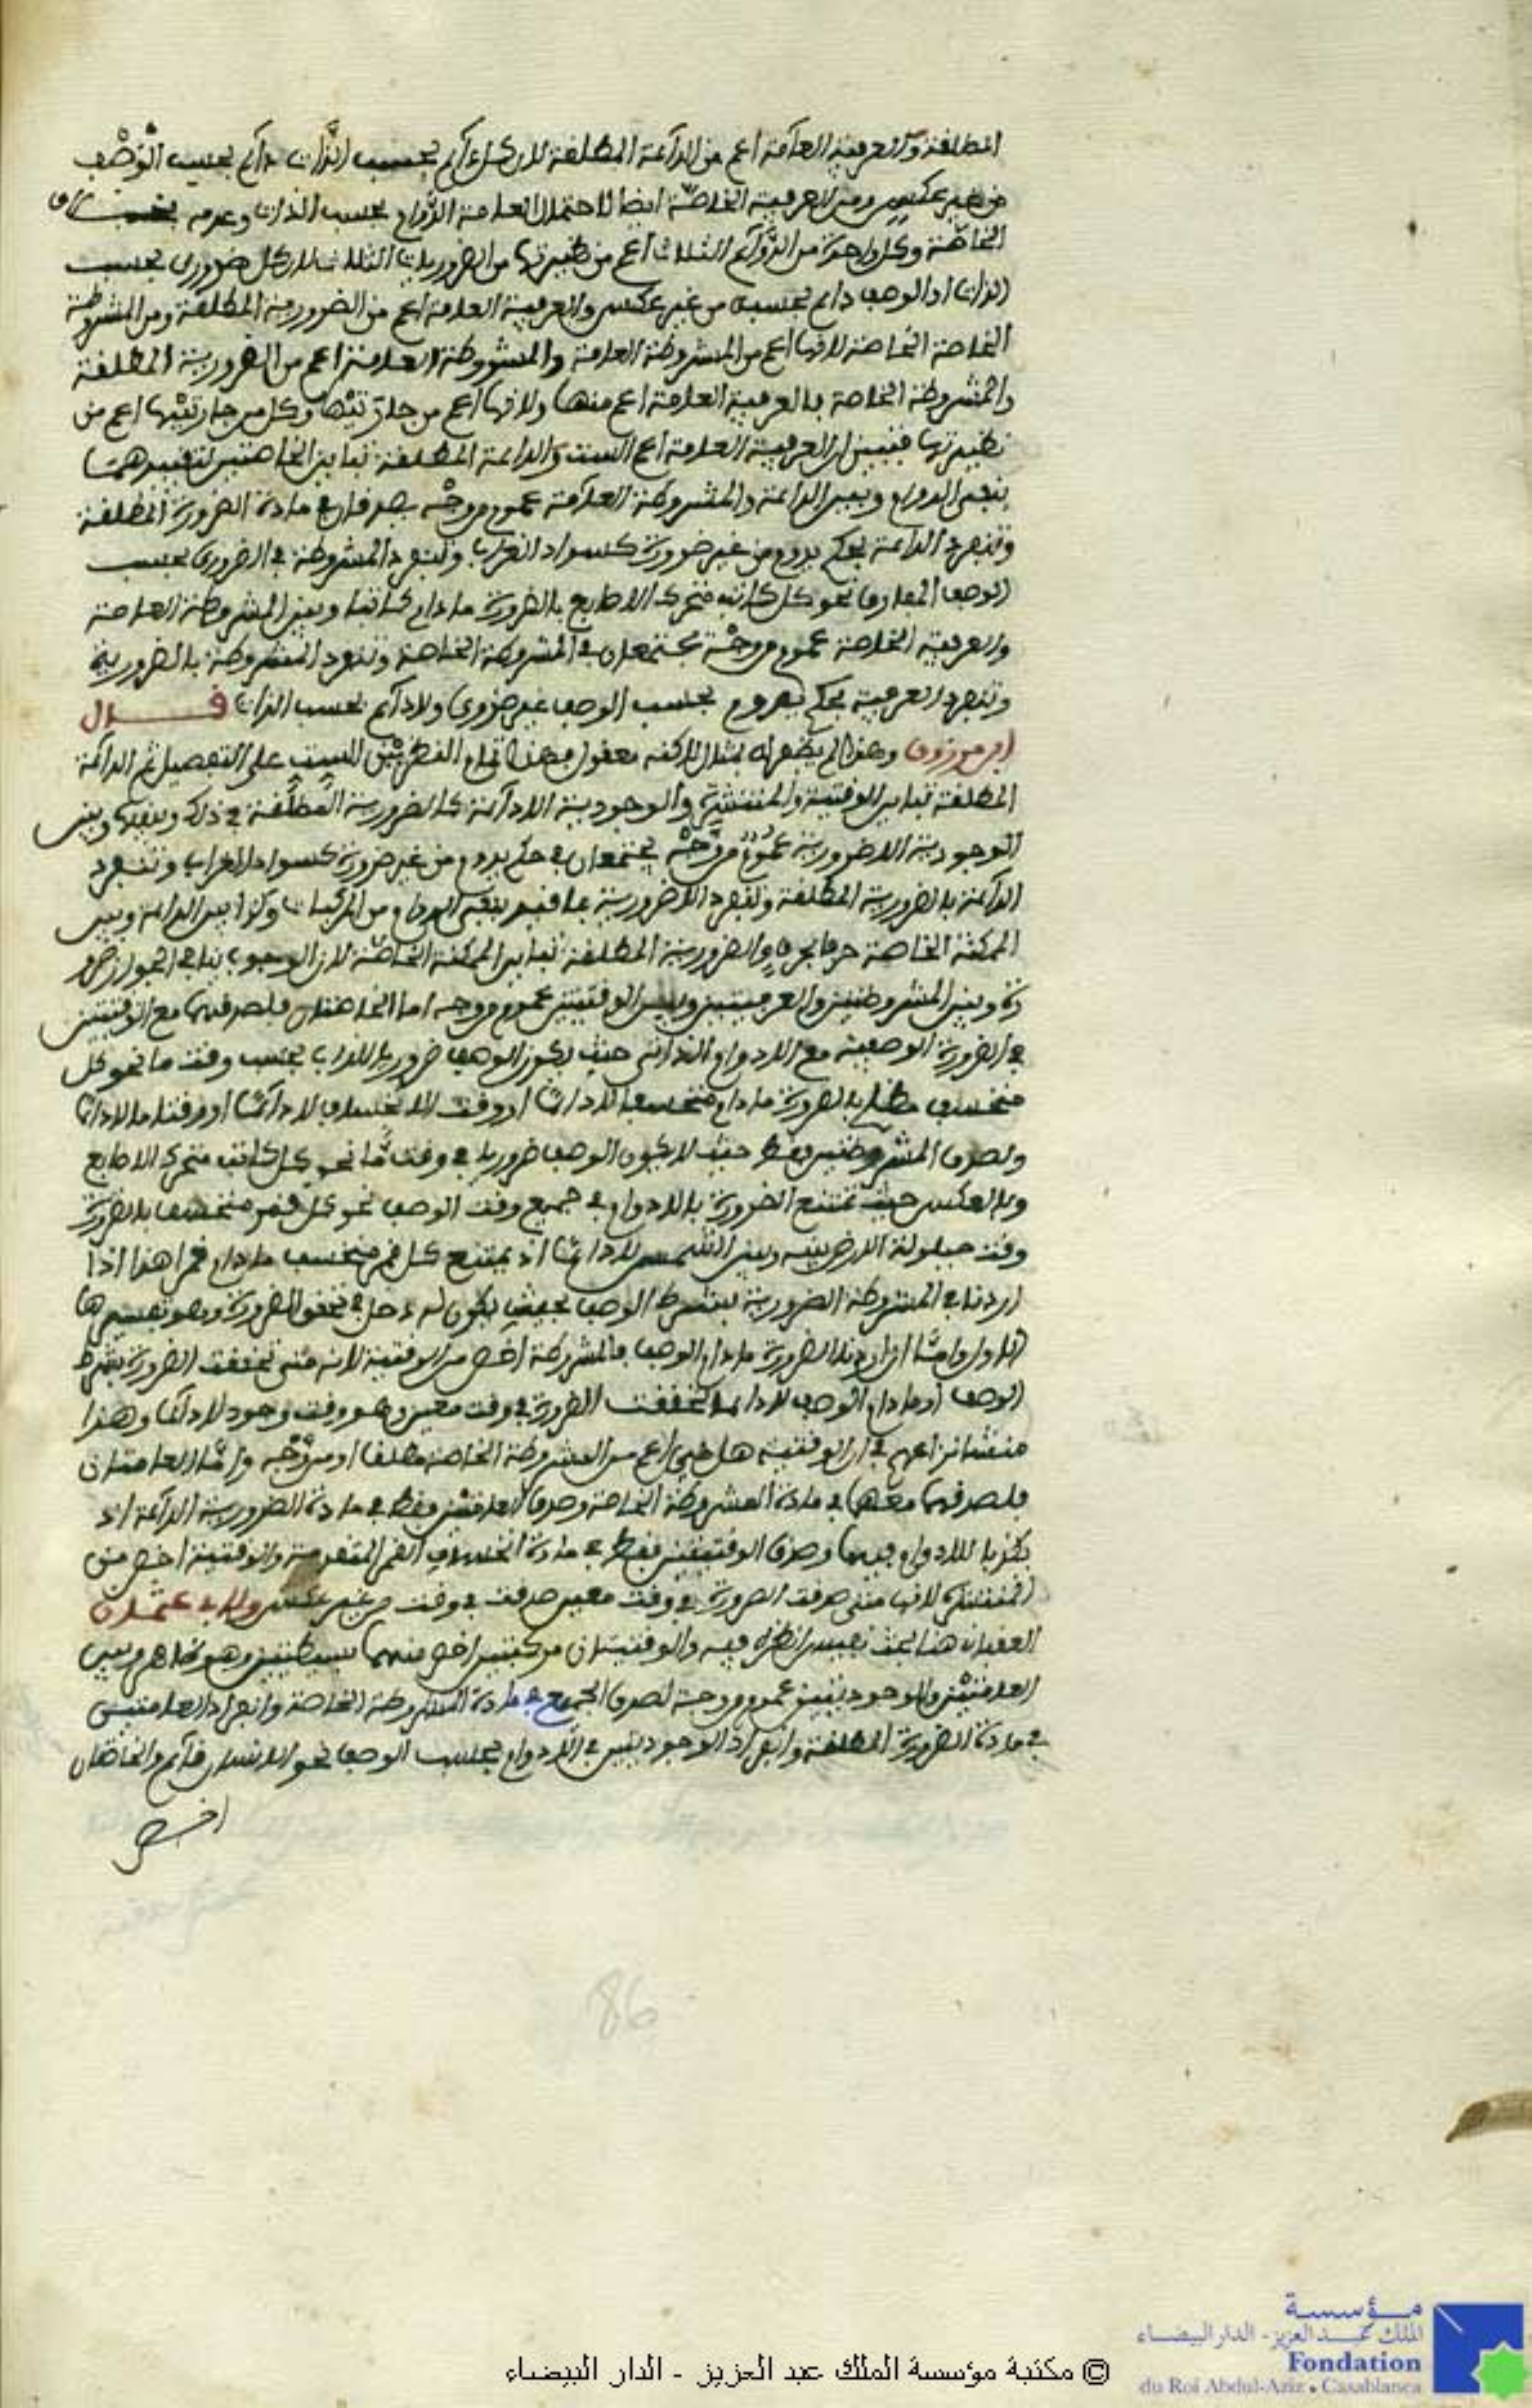 المطلقة والعرفية العامة اعم من الدآئمة المطلقة لان كل دآئم بحسب الذَّات دآئم بحسب الوَصْف
من غير عكس ومن العرفية الخاصّة ايضا لاحتمال العامة الدَّوام بحسب الذات وعدمه بخلاف
الخاصّة وكل واحدة من الدَّوآئم الثلاث اعم من نظيرتها من الضروريات الثلاث لان كل ضروري بحسب
الذات او الوصف دائم بحسبه من غير عكس والعرفية العامة اعم من الضرورية المطلقة ومن المشروطة
الخاصة لانها اعم من المشروطة العامة والمشروطة العامة اعم من الضرورية المطلقة
والمشروطة الخاصة فالعرفية العامة اعم منها ولانها اعم من جارتيْها وكل من جارتيْها اعم من
نظيرتها فتبين ان العرفية العامة اعم الست والدائمة المطلقة تباين الخاصتين لتقييدهما
بنفي الدوام وبين الدائمة والمشروطة العامة عموم من وجْه يصدقان في مادة الضرورة المطلقة
وتنفرد الدائمة بحكم يدوم من غير ضرورة كسواد الغراب وتنفرد المشروطة في الضروري بحسب
الوصف المفارق نحو كل كاتب متحرك الاصابع بالضرورة ما دام كاتبا وبين المشروطة العامة
والعرفية الخاصة عموم من وجْه يجتمعان في المشروطة الخاصة وتنفرد المشروطة بالضرورية
وتنفرد العرفية بحكم يدوم بحسب الوصف غير ضروري ولا دآئم بحسب الذات قال
ابن مرزوق وهذا لم يظفر له بمثال لاكنه معقول فهذا تمام النظر بيْن الست على التفصيل ثم الدائمة
المطلقة تباين الوقتية والمنتشرة والوجودية اللادآئمة كالضرورية المطلقة في ذلك وبينها وبين
الوجودية اللاضرورية عمُومٌ من وَجْه يجتمعان في حكم يدوم من غير ضرورة كسواد الغراب وتنفرد
الدآئمة بالضرورية المطلقة وتنفرد اللاضرورية بما قيد بنفي الدوام من المركبات وكذا بين الدائمة وبين
الممكنة الخاصة حرفا بحرف والضرورية المطلقة تباين الممكنة الخاصّة لان الوجوب ينافي الجواز ضرو
رة وبين المشروطتين والعرفيتين وبين الوقتيتين عموم من وجه اما الخاصتان فلصدقهما مع الوقتيتين
في الضرورة الوصفية مع اللادوام الذاتي حيث يكون الوصف ضروريا للذات بحسب وقت ما نحو كل
منخسف مظلم بالضرورة ما دام منخسفا لا دائما او وقت الانخساف لا دآئما او وقتا ما لا دائما
ولصدق المشروطتين فقط حيث لا يكون الوصف ضروريا في وقت مَّا نحو كل كاتب متحرك الاصابع
وبالعكس حيث تمتنع الضرورة بالادوام في جميع وقت الوصف نحو كل قمر منخسف بالضرورة
وقت حيلولة الارض بينه وبين الشمس لا دائما اذ يمتنع كل قمر منخسف ما دام قمرا هذا اذا
اردنا في المشروطة الضرورية بشرط الوصف بحيث يكون له دخل في تحقق الضرورة وهو تفسيرها
الاول وامَّا اذا اردنا الضرورة ما دام الوصف فالمشروطة اخص من الوقتية لانه متى تحققت الضرورة بشرط
الوصف او ما دام الوصف لا دائما تحققت الضرورة في وقت معين وهو وقت وجود لا دآئما وهذا
منشا نزاعهم في ان الوقتية هل هي اعم من المشروطة الخاصة مطلقا او من وَجْه وامَّا العامتان
فلصدقهما معهما في مادة المشروطة الخاصة وصدق العامتيْن فقط في مادة الضرورية الدآئمة اذ
يكذب اللادوام فيهما وصدق الوقتيتين فقط في مادة انخساف القمر المتقدمة والوقتية اخص من
المنتشرة لانها متى صدقت الضرورة في وقت معين صدقت في وقت من غير عكس ولابي عثمان
العقباني هنا بحث نفيس انظره فيه والوقتيتان مركبتين اخص منهما بسيطتين وهو ظاهر وبين
العامتيْن والوجوديتين عموم من وجه لصدق الجميع في مادة المشروطة الخاصة وانفراد العامتيْن
في مادة الضرورة المطلقة وانفراد الوجوديتين في اللادوام بحسب الوصف نحو الانسان قآئم والخاصتان
اخص
86
© مكتبة مؤسسة الملك عبد العزيز - الدار البيضاء
مؤسسة
الملك عبد العزيز - الدار البيضاء
Fondation
du Roi Abdul-Aziz • Casablanca